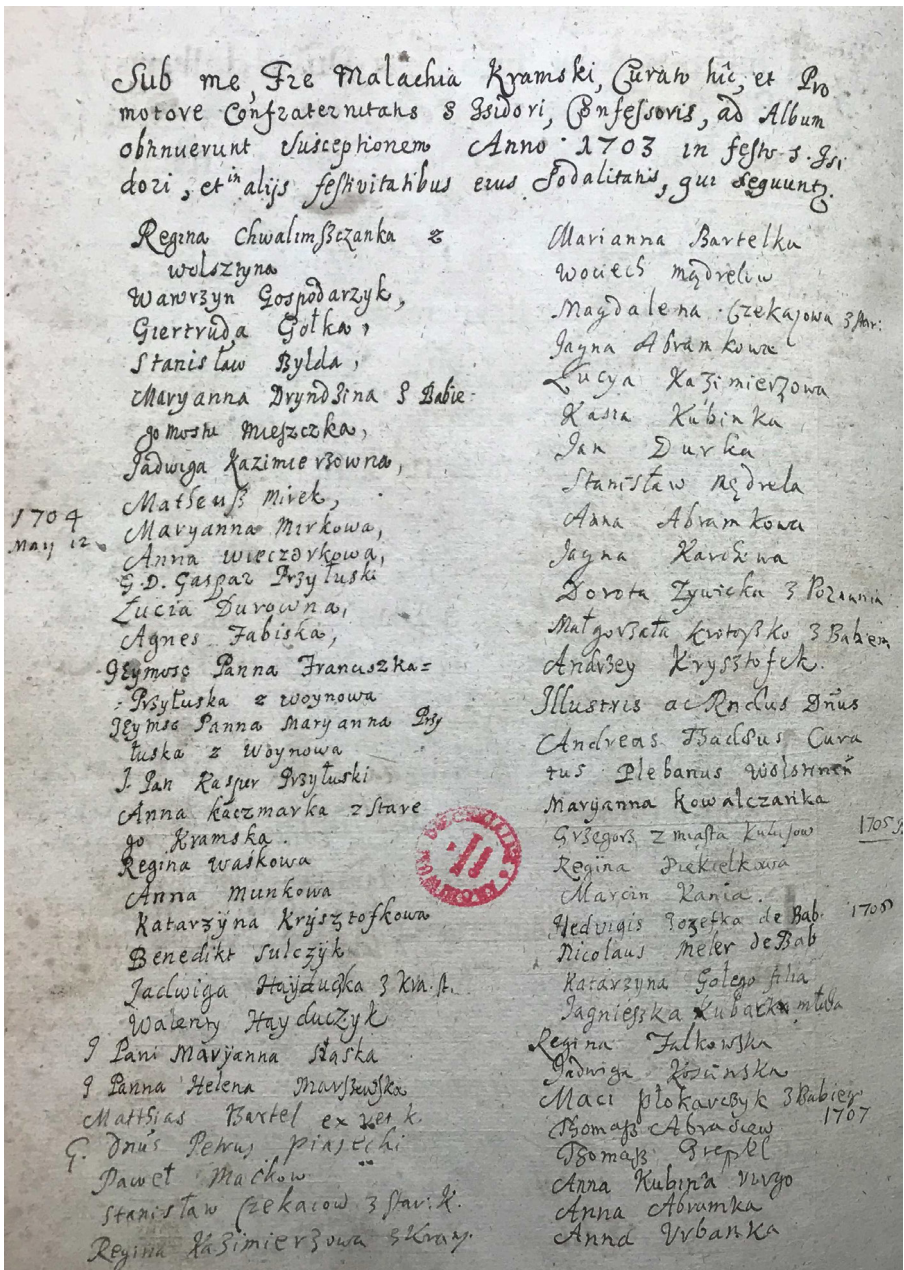 Sub me, Fre Malachia Kramski, Curato hic, et Pro
motore Confraternitatis S Isidori, Confessoris, ad Album
obtinuerunt susceptionem Anno 1703 in festo S. Isi
dori, et in alijs festivitatibus eius Sodalitatis, qui sequunt.
Regina Chwalimszczanka z
wolsztyna
Wawrzyn Gospodarzyk,
Giertruda Gołka,
Stanisław Bylda,
Maryanna Dryndzina z Babie
gomostu Mieszczka,
Jadwiga Kazimierzowna,
Matheusz Mirek,
1704
Maryanna Mirkowa,
May 12
Anna wieczorkowa,
G. D. Gaspar Przyłuski
Łucia Durowna,
Agnes Fabiska,
Jeymosc Panna Franciszka=
=Przyłuska z woynowa
Jeymosc Panna Maryanna Przy
łuska z Woynowa
J. Pan Kasper Przyłuski
Anna kaczmarka z Stare
go Kramska.
Regina Waśkowa
Anna Munkowa
Katarzyna Krysztofkowa
Benedikt Sulczyk
Jadwiga Hayduczka z kra. st.
Walenty Hayduczyk
J Pani Maryanna słaska
J Panna Helena Marszewska
Matthias Bartel ex vet k.
G. Dnus Petrus piasecki
Paweł Maćkow
Stanisław Czekaiow z Star: K.
Regina Kazimierzowa z Kram.
Marianna Bartelka
Wociech mądrelow
Magdalena Czekajowa z star:
Jagna Abramkowa
Łucya Kazimierzowa
Kasia Kubinka
Jan Durka
Stanisław mądrela
Anna Abramkowa
Jagna
Dorota Zywicka z Poznania
Małgorzata z Babiem
Andrzey Krysztofek.
Illustris ac Rndus Dnus
Andreas Curа
tus Plebanus
Maryanna Kowalczanka
Grzegorz z miasta 1705
Regina Piekielkowa
Marcin Kania.
Hedvigis Iozefka de Bab. 1705
Nicolaus Meler de Bab
Katarzyna Gołego filia
Jagnieszka Kubarka młoda
Regina Falkowska
Jadwiga
Maci płokarczyk z Babiem
1707
Thomasz Abracław
Thomasz Grepel
Anna Kubina virgo
Anna Abramka
Anna Vrbanka